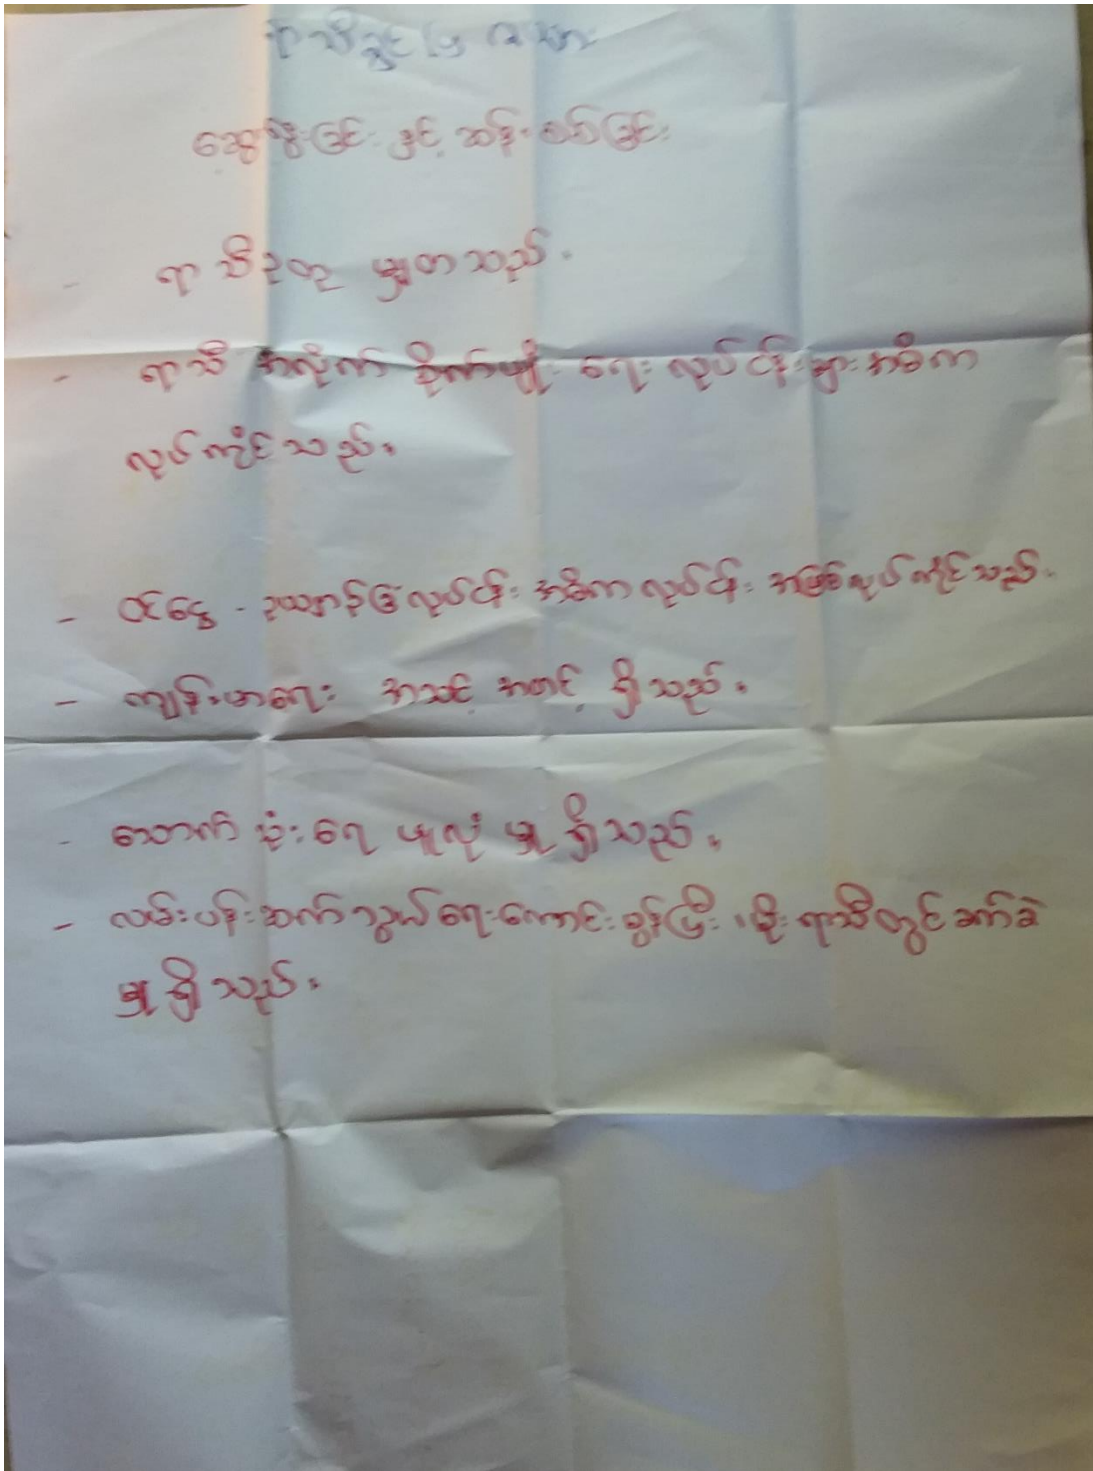 ရာသီခွင်ပြ
ဆွေးနွေးခြင်း နှင့် ဆန်းစစ်ခြင်း
ရာသီဥတု မျှတသည်။
- ရာသီ အလိုက် စိုက်ပျိုး ရေး လုပ်ငန်းများ အဓိက
လုပ်ကိုင်သည်။
- ဝင်ငွေ - ဥယျာဉ်ခြံလုပ်ငန်း အဓိက လုပ်ငန်း အဖြစ်လုပ်ကိုင်သည်။
- ကျန်းမာရေး အသင့် အတင့် ရှိသည်။
- သောက်သုံးရေ ဖူလုံ မှု ရှိသည်။
- လမ်းပန်းဆက်သွယ်ရေးကောင်းမွန်ပြီး ၊ မိုးရာသီတွင်ခက်ခဲ
မှု ရှိသည်။